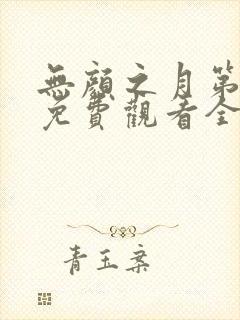 無顏之月第
免費觀看全
青玉案